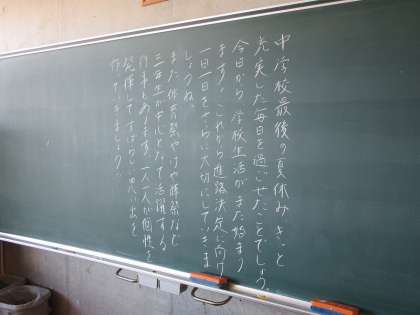 中学校最後の夏休み、きっと
充実した毎日を過ごせたことでしょう。
今日から、学校生活がまた始まり
ます。これから進路決定に向け
一日一日をさらに大切にしていきま
しょうね。
また体育祭やけやき祭など
三年生が中心となって活躍する
行事もあります。一人一人が個性を
発揮してすばらしい思い出を
作りましょう。